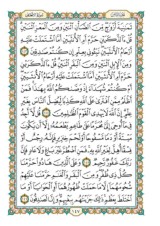 ثَمَٰنِيَةَ أَزْوَٰجٍ مِّنَ ٱلضَّأْنِ ٱثْنَيْنِ وَمِنَ ٱلْمَعْزِ ٱثْنَيْنِ
قُلْ ءَآلذَّكَرَيْنِ حَرَّمَ أَمِ ٱلْأُنثَيَيْنِ أَمَّا ٱشْتَمَلَتْ عَلَيْهِ
أَرْحَامُ ٱلْأُنثَيَيْنِ نَبِّـُٔونِى بِعِلْمٍ إِن كُنتُمْ صَٰدِقِينَ ١٤٣
وَمِنَ ٱلْإِبِلِ ٱثْنَيْنِ وَمِنَ ٱلْبَقَرِ ٱثْنَيْنِ قُلْ ءَآلذَّكَرَيْنِ
حَرَّمَ أَمِ ٱلْأُنثَيَيْنِ أَمَّا ٱشْتَمَلَتْ عَلَيْهِ أَرْحَامُ ٱلْأُنثَيَيْنِ
أَمْ كُنتُمْ شُهَدَآءَ إِذْ وَصَّىٰكُمُ ٱللَّهُ بِهَٰذَا فَمَنْ
أَظْلَمُ مِمَّنِ ٱفْتَرَىٰ عَلَى ٱللَّهِ كَذِبًا لِّيُضِلَّ ٱلنَّاسَ بِغَيْرِ
عِلْمٍ إِنَّ ٱللَّهَ لَا يَهْدِى ٱلْقَوْمَ ٱلظَّٰلِمِينَ ١٤٤ قُل لَّآ أَجِدُ
فِى مَآ أُوحِىَ إِلَىَّ مُحَرَّمًا عَلَىٰ طَاعِمٍ يَطْعَمُهُۥٓ إِلَّآ أَن يَكُونَ
مَيْتَةً أَوْ دَمًا مَّسْفُوحًا أَوْ لَحْمَ خِنزِيرٍ فَإِنَّهُۥ رِجْسٌ
أَوْ فِسْقًا أُهِلَّ لِغَيْرِ ٱللَّهِ بِهِۦ فَمَنِ ٱضْطُرَّ غَيْرَ بَاغٍ وَلَا عَادٍ فَإِنَّ
رَبَّكَ غَفُورٌ رَّحِيمٌ ١٤٥ وَعَلَى ٱلَّذِينَ هَادُوا۟ حَرَّمْنَا
كُلَّ ذِى ظُفُرٍ وَمِنَ ٱلْبَقَرِ وَٱلْغَنَمِ حَرَّمْنَا عَلَيْهِمْ
شُحُومَهُمَآ إِلَّا مَا حَمَلَتْ ظُهُورُهُمَآ أَوِ ٱلْحَوَايَآ أَوْ مَا
ٱخْتَلَطَ بِعَظْمٍ ذَٰلِكَ جَزَيْنَٰهُم بِبَغْيِهِمْ وَإِنَّا لَصَٰدِقُونَ ١٤٦
١٤٧